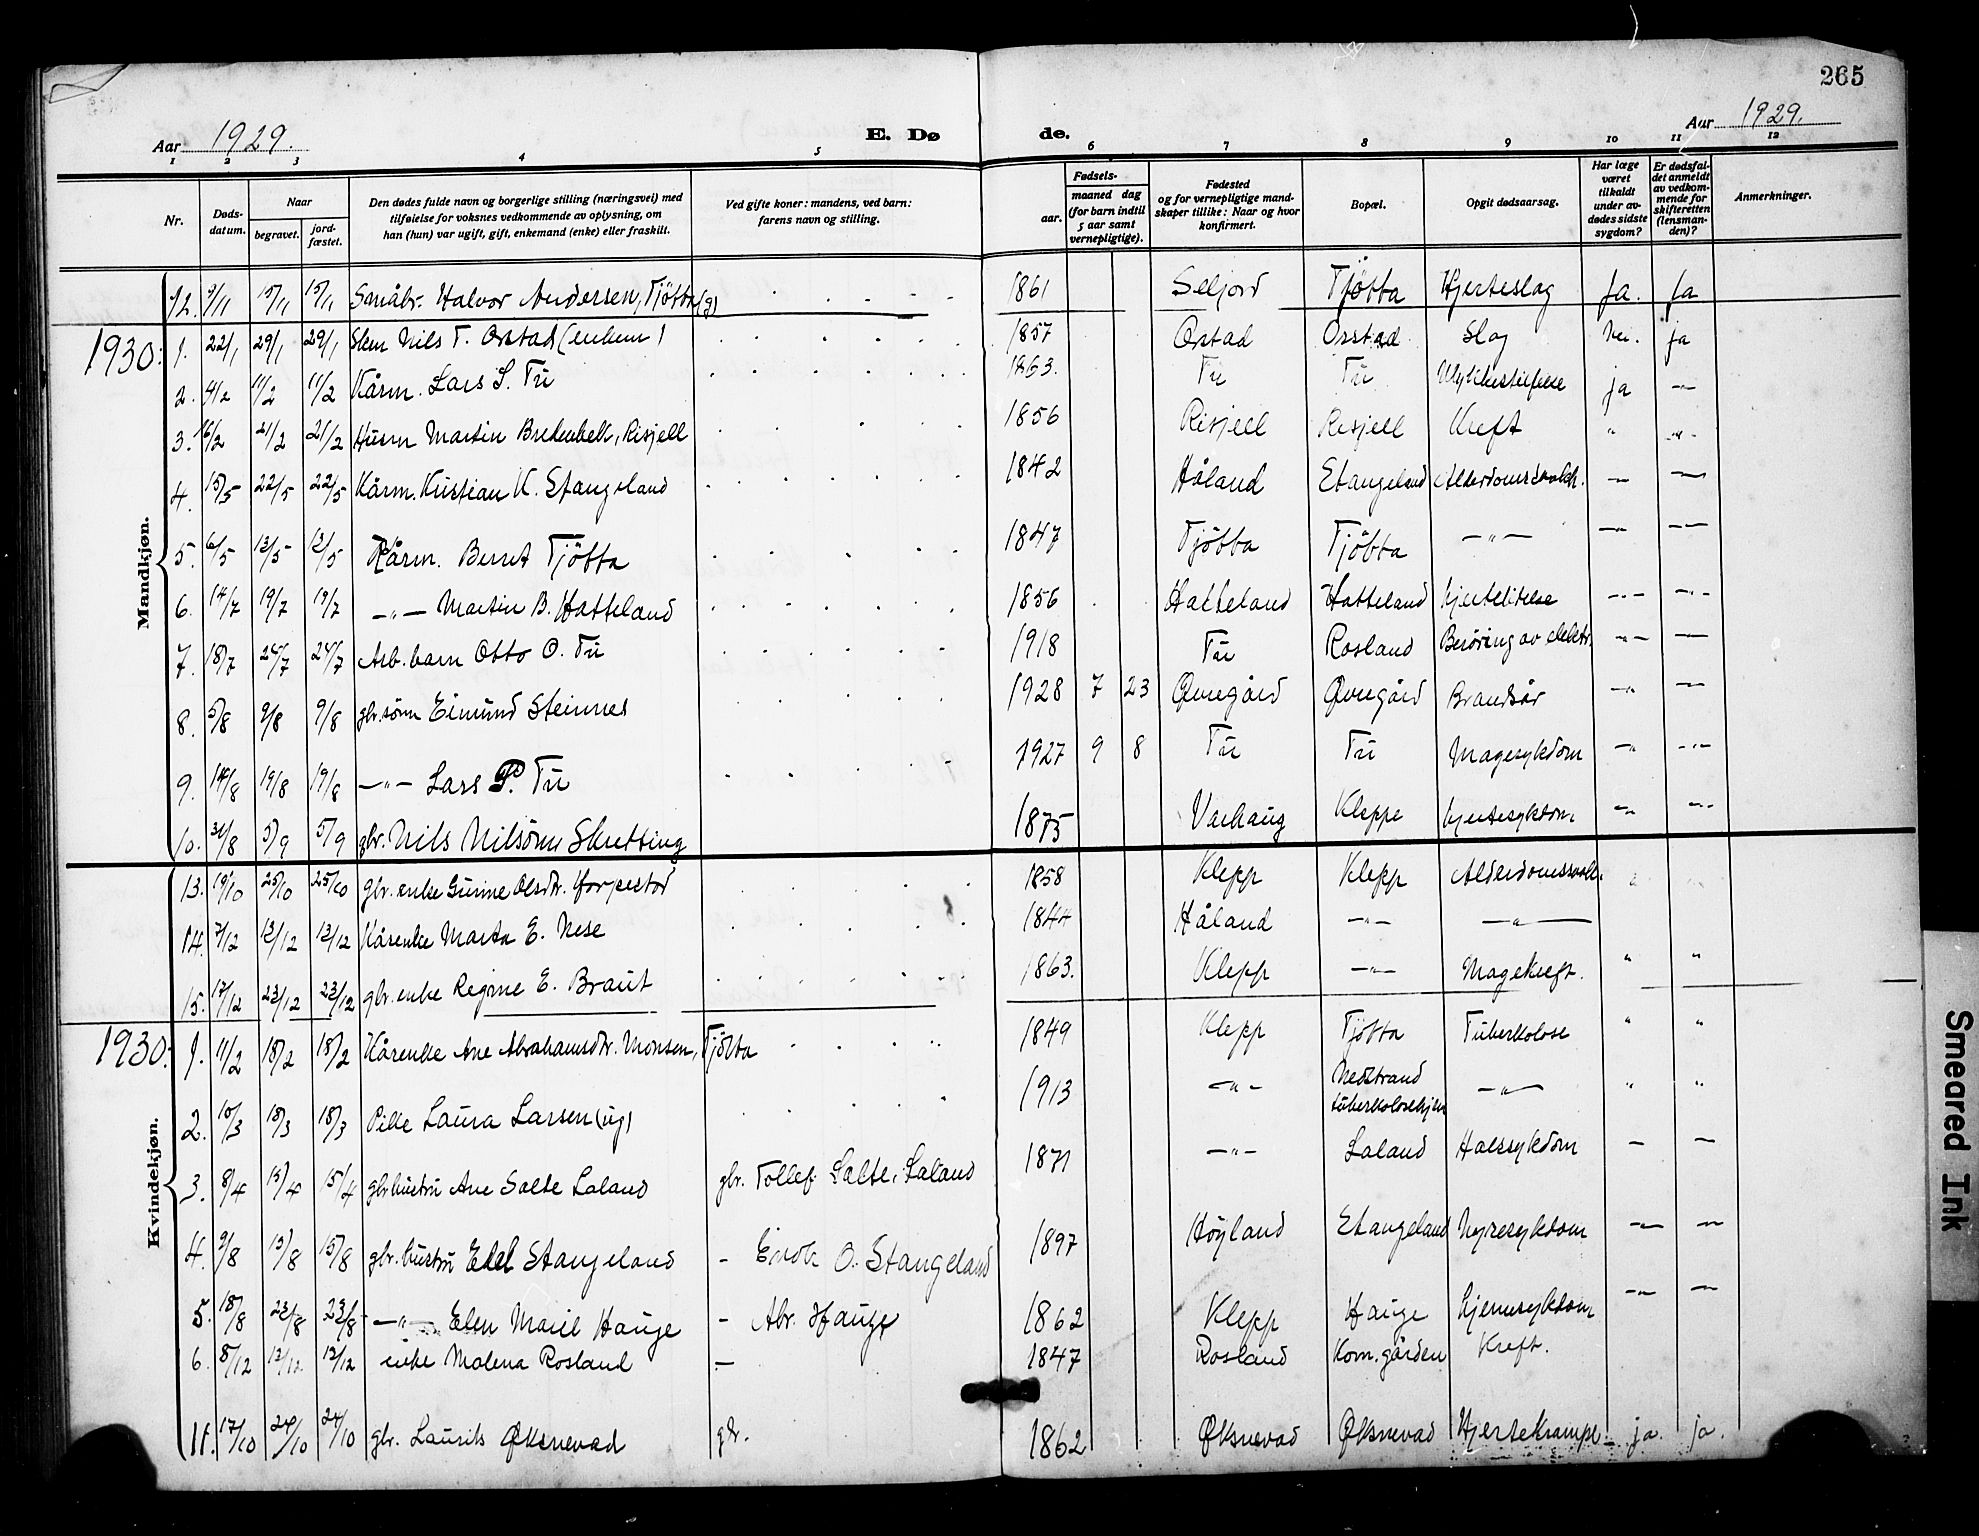 265
Aar 1929. E. Dø de. Aar 1929.
1 2 3 4 5 6 7 8 9 10 11 12
Nr. Døds-datum. Naar begravet. jord-fæstet. Den dødes fulde navn og borgerlige stilling (næringsvei) med tilføielse for voksnes vedkommende av oplysning, om han (hun) var ugift, gift, enkemand (enke) eller fraskilt. Ved gifte koner: mandens, ved barn: farens navn og stilling. Fødsels- aar. maaned dag (for barn indtil 5 aar samt vernepligtige). Fødested og for vernepligtige mand-skaper tillike: Naar og hvor konfirmert. Bopæl. Opgit dødsaarsag. Har læge været tilkaldt under av-dødes sidste sygdom? Er dødsfal-det anmeldt av vedkom-mende for skifteretten (lensman-den)? Anmerkninger.
Mandkjøn.
12. 9/11 15/11 15/11 Småbr. Halvor Andersen, Tjøtta (g) 1861 Seljord Tjøtta Hjerteslag Ja. Ja
1930:
1. 22/1 29/1 29/1 Nils T. Orstad (enkem) 1857 Orstad Orstad Slag Nei. ja
2. 4/2 11/2 11/2 Kårm. Lars L. Tu 1863. Tu Tu ja -"-
3. 16/2 21/2 21/2 Husm Martin Bredebekk, Risjell 1856 Risjell Risjell Kreft " -"-
4. 15/5 22/5 22/5 Kårm. Kristian K. Stangeland 1842 Håland Stangeland - -
5. 6/5 13/5 13/5 Kårm. Berret Tjøtta 1847 Tjøtta Tjøtta -"- -"- -"-
6. 14/7 19/7 19/7 -"- Martin B. Hatteland 1856 Hatteland Hatteland hjertelidelse -"- -"-
7. 18/7 24/7 24/7 Arb. barn Otto O. Tu 1918 Tu Rosland Berøring av elektr. -"- -
8. 5/8 9/8 9/8 gbr. sønn Eimund Steinnes 1928 7 23 Øvregård Øvregård Brandsår -"- -
9. 14/8 19/8 19/8 -"- Lars P. Tu 1927 9 8 Tu Tu Magesykdom -"- -"-
10. 31/8 5/9 5/9 gbr. Nils Nilsønn Skretting 1875 Varhaug Kleppe hjertesykdom. -"- -"-
Kvindekjøn.
13. 19/10 25/10 25/10 gbr. enke Gurine Olsdtr. Horpestad 1858 Klepp Klepp "
14. 7/12 13/12 13/12 Kårenke Marta E. Nese 1844 Håland -"- -"-
15. 17/12 23/12 23/12 gbr. enke Regine E. Braut 1863. Klepp -"- Magekreft. " "
1930:
1. 11/2 18/2 18/2 Kårenke Ane Abrahamsdtr. Monsen, Tjøtta 1849 Klepp Tjøtta Tuberkolose " "
2. 10/3 18/3 18/3 Pike Laura Larsen (ug) 1913 -"- Nedstrand tuberkolosehjem -"- " "
3. 8/4 15/4 15/4 gbr hustru Ane Salte Laland gbr. Tollef Salte, Laland 1871 -"- Laland Halssykdom - -"-
4. 9/8 15/8 15/8 gbr. hustru Edel Stangeland - Enok O. Stangeland 1897 Høyland Stangeland Nyresykdom -"- -"-
5. 18/8 23/8 23/8 -"- Elen Marie Hauge - Abr. Hauge 1862 Klepp Hauge hjernesykdom -"- -"-
6. 8/12 13/12 13/12 enke Malena Rosland - 1847 Rosland Kom. gården Kreft.
11. 17/10 24/10 24/10 gbr. Laurits Øksnevad gbr. 1862 Øksnevad Øksnevad Hjertekrampe ja. ja.
Smeared Ink